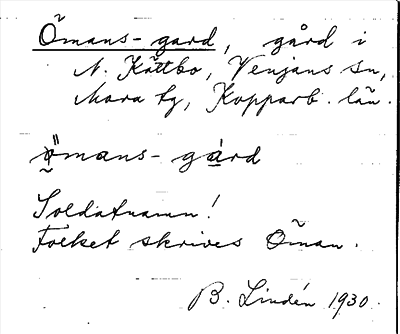 Ömans-gard, gård i
N. Kättbo, Venjans sn,
Mora tg, Kopparb. län.
ömans-gård
Soldatnamn!
Folket skrives Öman.
B. Lindén 1930.